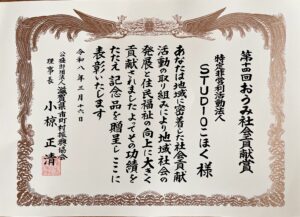 第十四回おうみ社会貢献賞
特定非営利活動法人
STUDIOこほく 様
あなたは地域に密着した社会貢献
活動の取り組みにより地域社会の
発展と住民福祉の向上に大きく
貢献されましたよってその功績を
たたえ記念品を贈呈しここに
表彰いたします
令和八年三月十六日
公益財団法人 滋賀県市町村振興協会
理事長 小椋正清